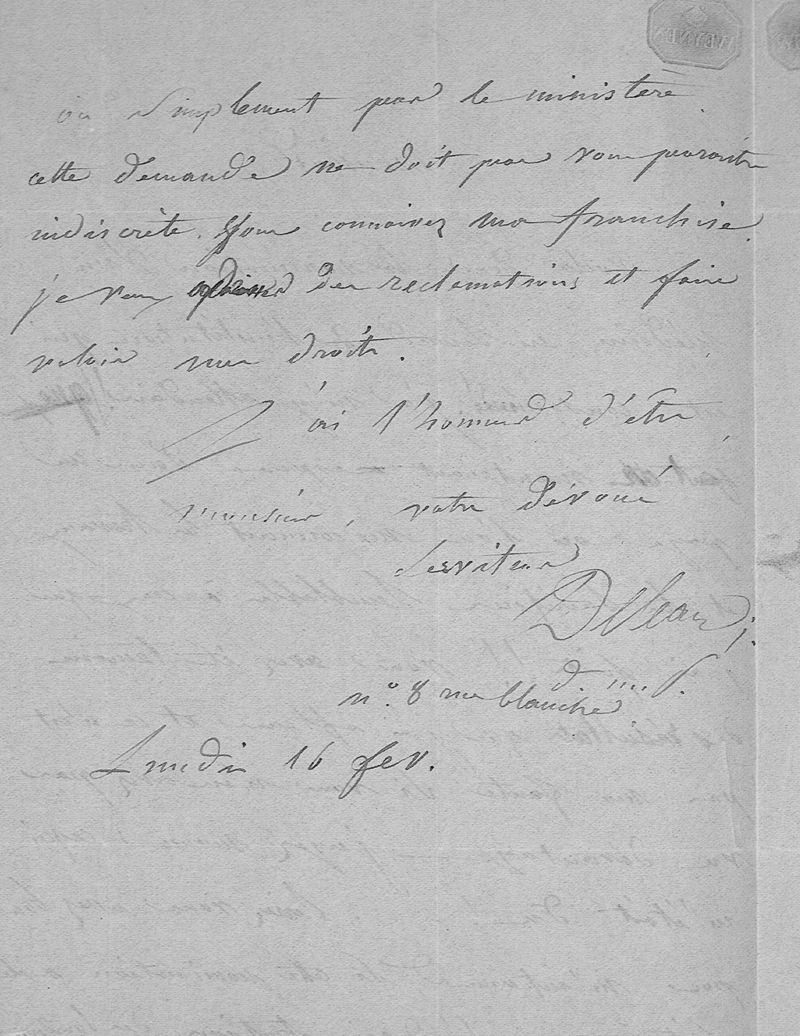 ou simplement pour le ministère.
cette demande ne doit pas vous paroitre
indiscrète. Vous connaissez ma franchise.
je veux des reclamations et faire
valoir mes droits.
J'ai l'honneur d'être,
monsieur, votre dévoué
Serviteur
Deleau j.
d....p.
n.° 8 rue blanche
Lundi 16 fev.